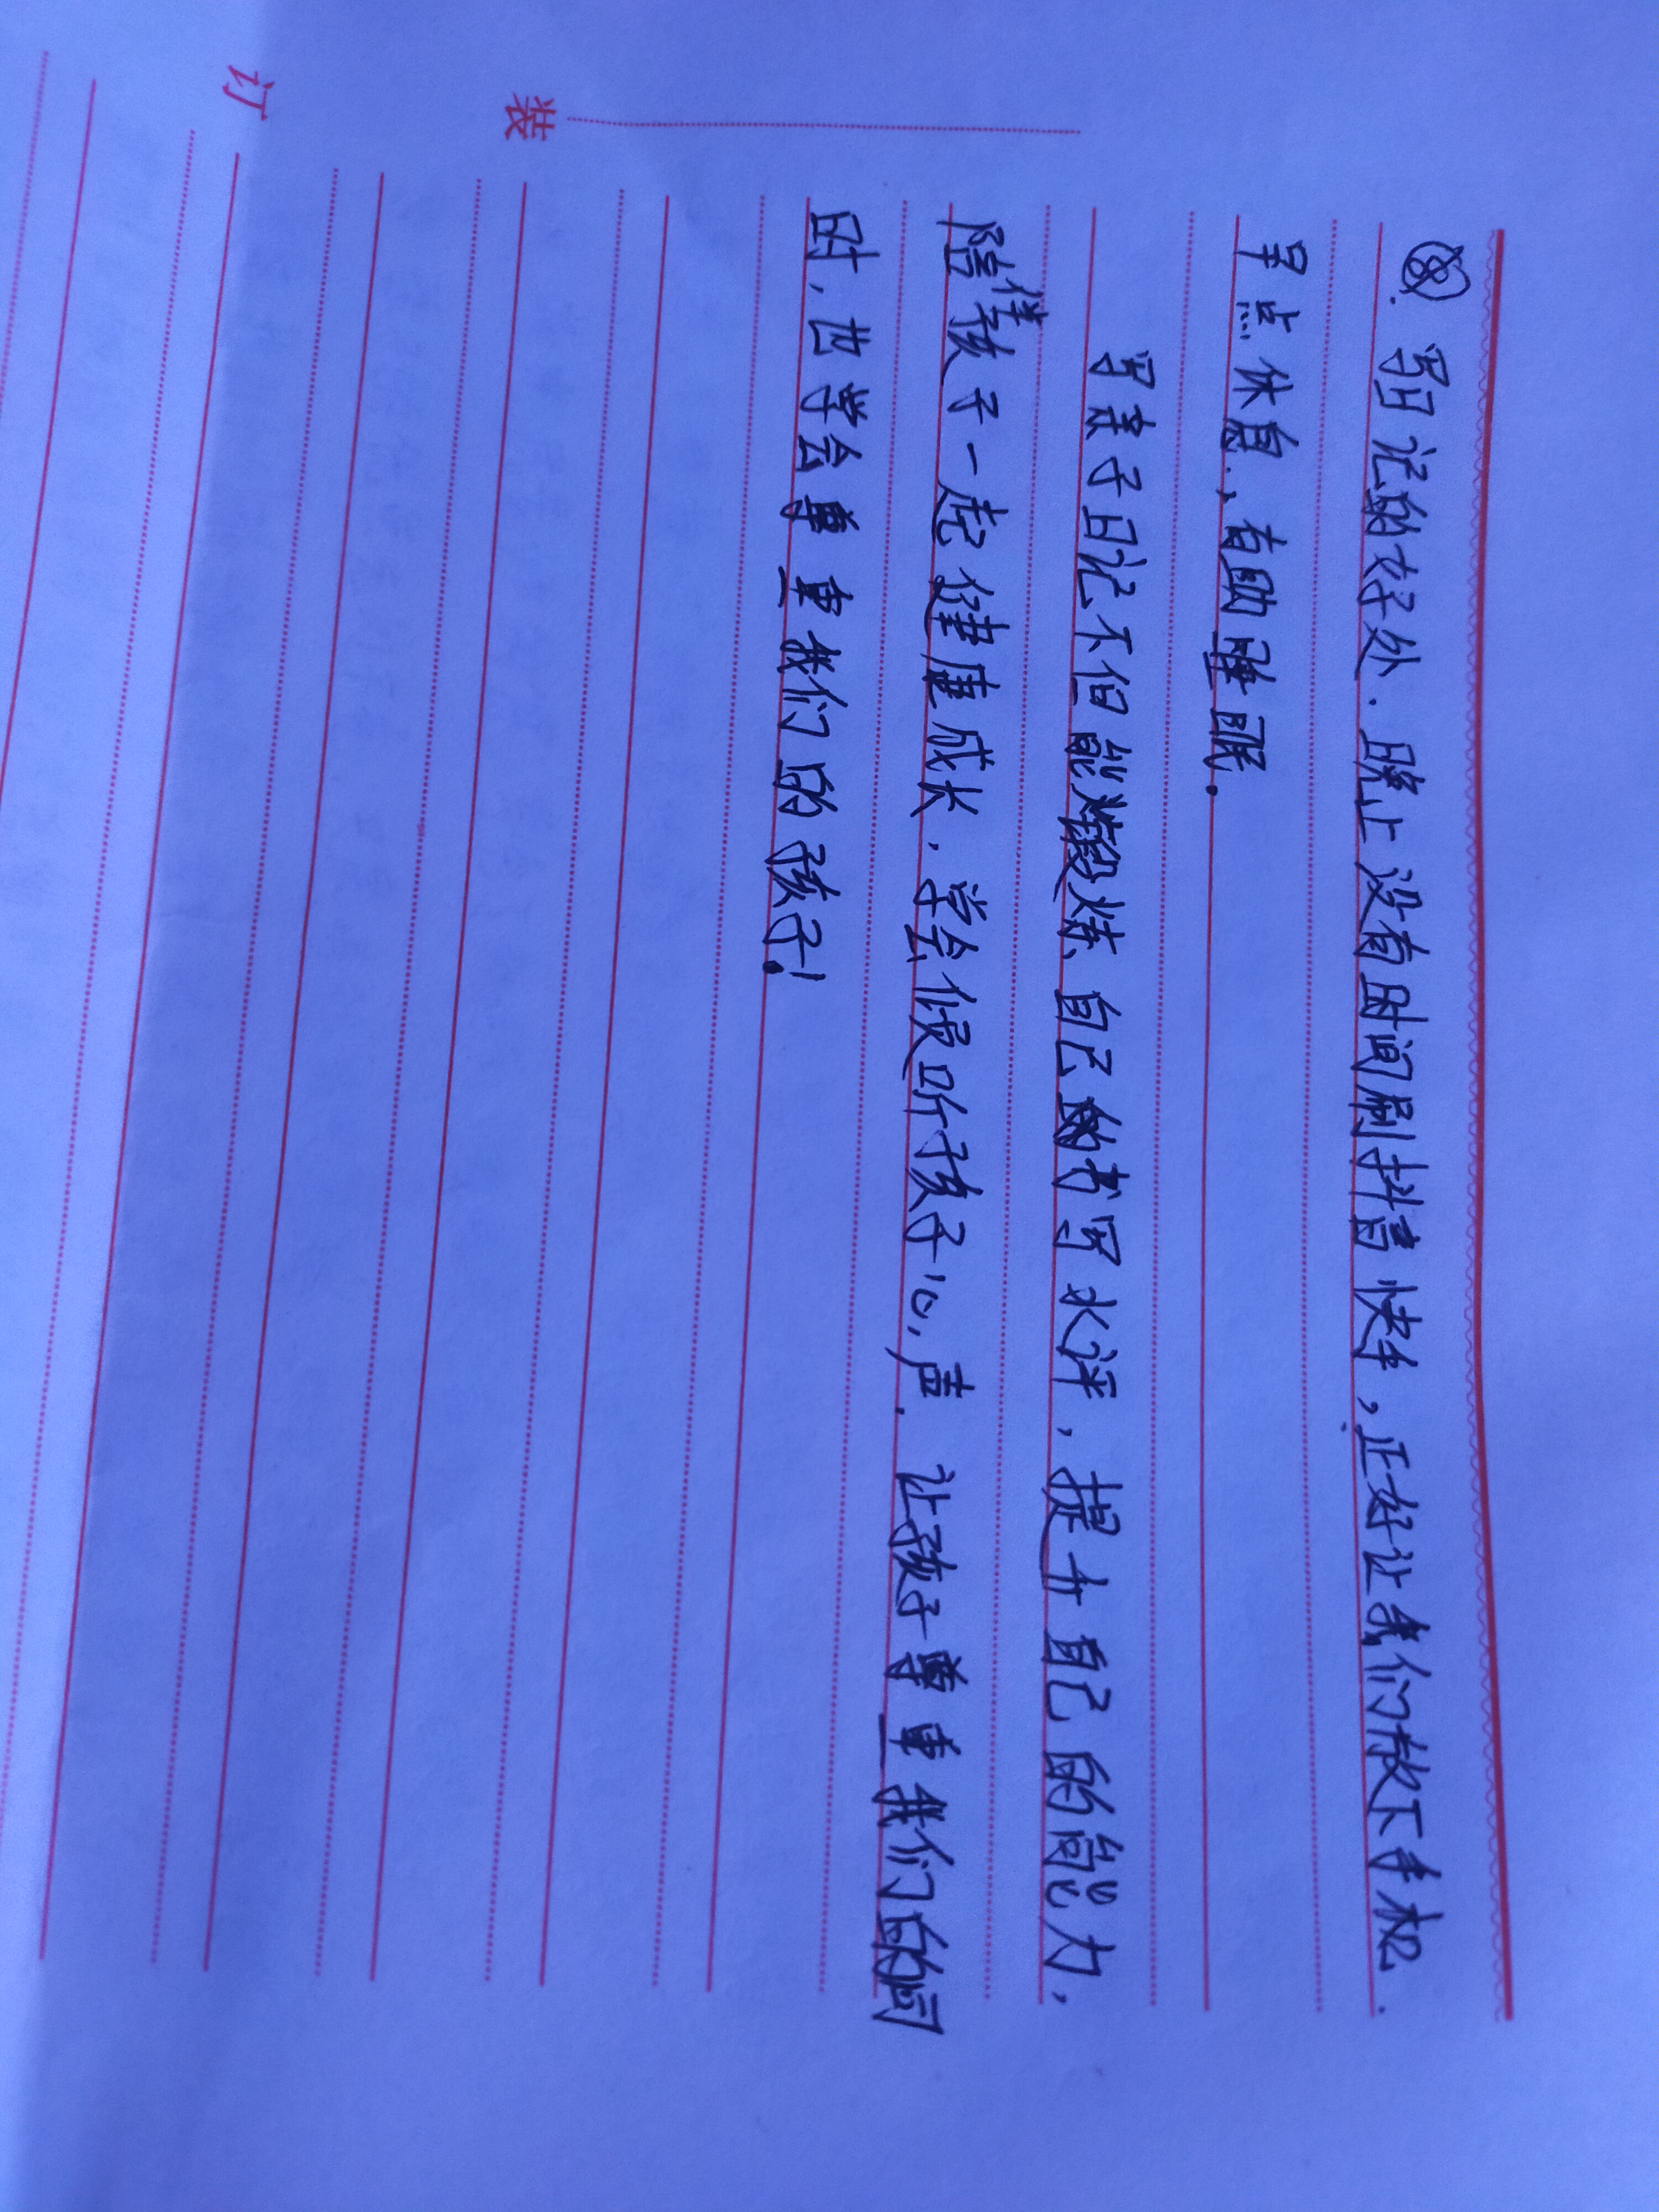 ⑧. 写日记的好处. 晚上没有时间刷抖音快手,正好让我们放下手机.
早点休息,有助睡眠.
写亲子日记不但能煅炼自己的书写水评,提升自己的能力,
陪伴孩子一起健康成长.学会倾听孩子心声.让孩子尊重我们的同
时,也学会尊重我们的孩子!
装
订